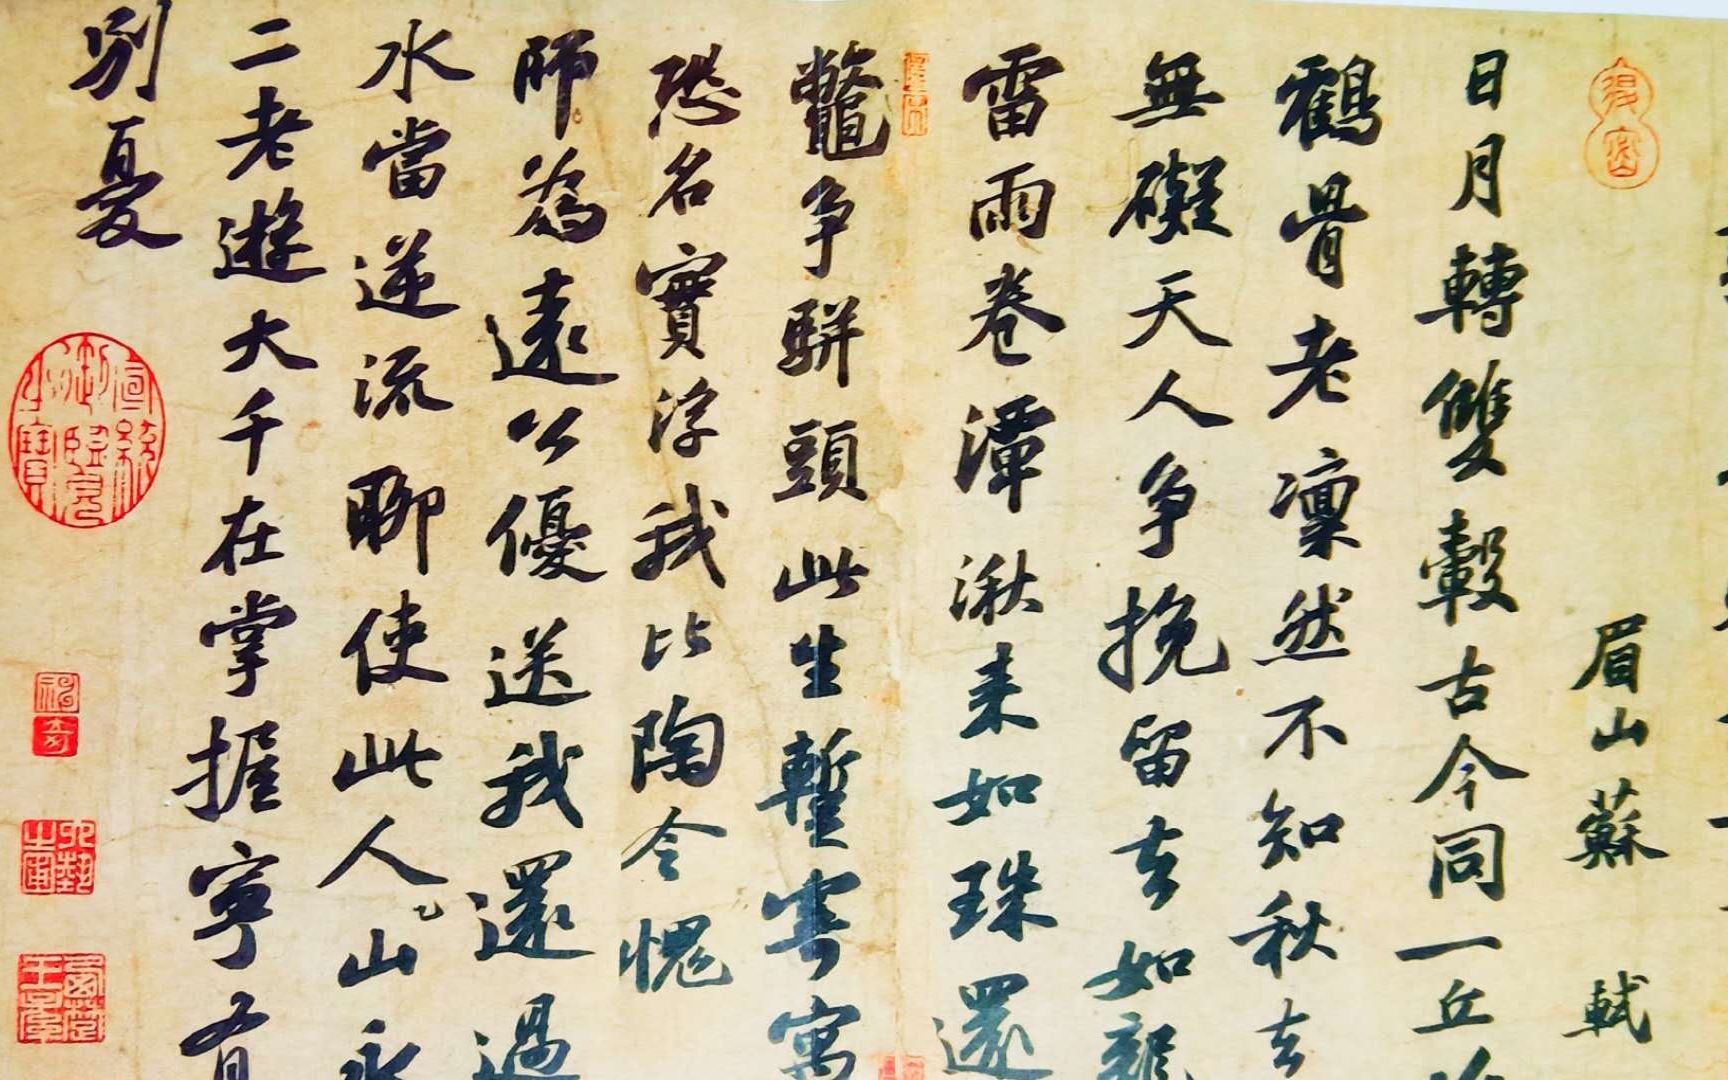 眉山蘇軾
日月轉雙轂古今同一丘
鶴骨老凜然不知秋去
無礙天人争挽留去如龍
雷雨卷潭湫来如珠還
鼈争駢頭此生暫寄寓
恐名實浮我比陶令愧
師為遠公優送我還過
水當逆流聊使此人山永
二老遊大千在掌握寧有
別憂